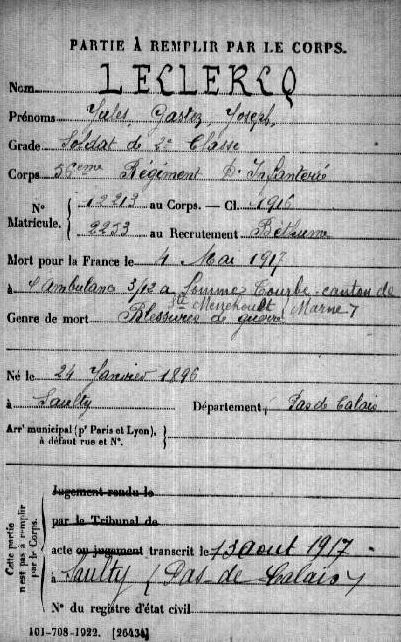 PARTIE À REMPLIR PAR LE CORPS.
Nom LECLERCQ
Prénoms Jules, Joseph
Grade Soldat de 2e Classe
Corps 56eme Régiment d'Infanterie
N° Matricule. { 12213 au Corps. — Cl. 1916
2253 au Recrutement Béthune
Mort pour la France le 4 Mai 1917
à l'Ambulance 3/12 à Somme Tourbe canton de
Ste Menehould (Marne)
Genre de mort Blessures de guerre
Né le 24 Janvier 1896
à Saulty Département Pas de Calais
Arr' municipal (p' Paris et Lyon),
à défaut rue et N°. }
Cette partie n'est pas à remplir par le Corps.
Jugement rendu le
par le Tribunal de
acte ou jugement transcrit le 13 août 1917
à Saulty (Pas-de-Calais)
N° du registre d'état civil
101-708-1922. [26434]